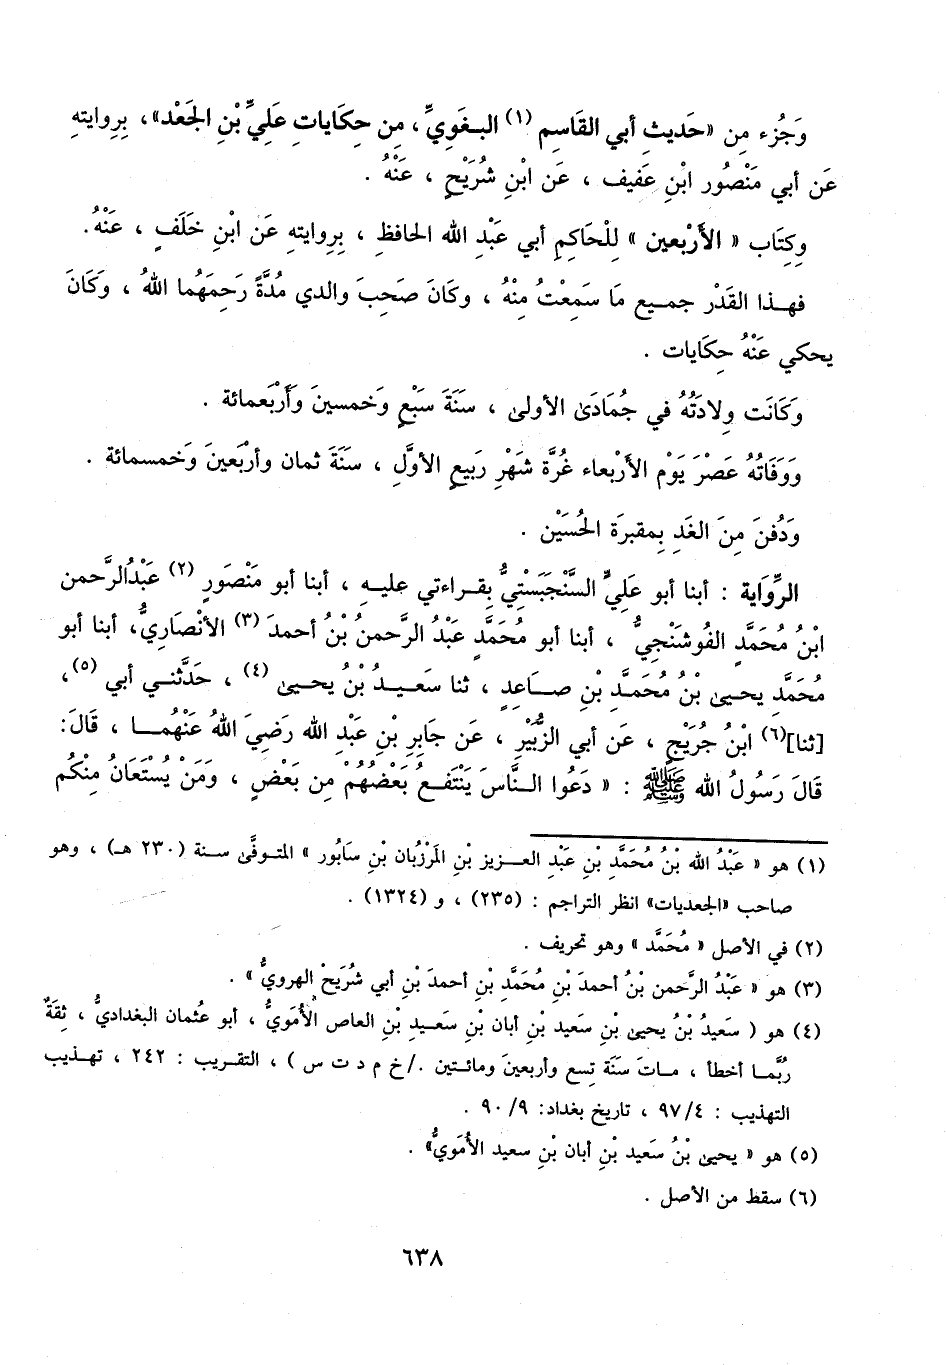 وَجُزء مِن «حَديثِ أبي القَاسِمِ (١) البـغَويِّ ، مِن حِكَاياتِ عَليِّ بْنِ الجَعْد»، بِرِوايتهِ
عَن أبي مَنْصُور ابْنِ عَفيف ، عَن ابْنِ شُرَيْحٍ ، عَنْهُ .
وكِتَاب « الأَرْبعين » لِلْحَاكِمِ أبي عَبْدِ الله الحافظِ ، بِرِوايتهِ عَن ابْنِ خَلَفٍ ، عَنْهُ.
فهـذا القَدْر جمـيع مَا سَمِعْتُ مِنْهُ ، وكَانَ صَحِبَ والدي مُدَّةً رَحِمَهُما اللهُ ، وكَانَ
يحكي عَنْهُ حِكَايات .
وَكَانَت وِلادَتُهُ في جُمَادَىٰ الأولىٰ ، سَنَةَ سَبْعٍ وَخمسينَ وَأَرْبَعمائة .
وَوَفَاتُهُ عَصْرَ يَوْم الأَرْبعاء غُرَّة شَهْرِ رَبيعِ الأوَّلِ ، سَنَةَ ثمان وأرْبَعينَ وَخمسمائة .
وَدُفنَ مِنَ الغَدِ بِمقبرَة الحُسَيْن .
الرِّوَاية : أبنا أبو عَلَيٍّ السَّنْجَبَسْتِيُّ بِقـراءتي عليـهِ ، أبنا أبو مَنْصُورٍ (٢) عَبْدُالرَّحمن
ابْنُ مُحَمَّدٍ الفُوشَنْجيُّ ، أبنا أبو مُحَمَّدٍ عَبْدُ الرَّحمنُ بْنُ أحمدَ (٣) الأنْصَاريُّ، أبنا أبو
مُحَمَّدٍ يحيىٰ بْنُ مُحَمَّـدِ بْنِ صـاعِدٍ ، ثنا سَعيـدُ بْنُ يحيىٰ (٤) ، حَدَّثنـي أبي (٥)،
[ثنا](٦) ابْنُ جُرَيْجٍ ، عَن أبي الزُّبَيْرِ ، عَن جَابِرِ بْنِ عَبْدِ الله رَضِيَ اللهُ عَنْهُمـا ، قَالَ:
قَالَ رَسُولُ الله ﷺ : « دَعُوا النَّاسَ يَنْتَفـعُ بَعْضُهُمْ مِن بَعْضٍ ، وَمَنْ يُسْتَعَانُ مِنْكُم
(١) هو « عَبْدُ الله بْنُ مُحَمَّدِ بْنِ عَبْدِ العـزيز بْنِ المَرْزُبان بْنِ سَابُور » المتوفَّىٰ سنة (٢٣٠ هـ) ، وهو
صاحب «الجعديات» انظر التراجم : (٢٣٥) ، و (١٣٢٤) .
(٢) في الأصل « مُحَمَّد » وهو تحريف .
(٣) هو « عَبْدُ الرَّحمن بْنُ أحمدَ بْنِ مُحَمَّدِ بْنِ أحمدَ بْنِ أبي شُرَيحْ الهرويُّ » .
(٤) هو ( سَعيدُ بْنُ يحيىٰ بْنِ سَعيد بْنِ أبان بْنِ سَعـيدِ بْنِ العاص الأُمَويُّ ، أبو عُثمان البغداديُّ ، ثِقَةٌ
رُبَّمـا أخطأ ، مـاتَ سَنَة تِسع وأربعينَ ومائـتين ./خ م د ت س ) ، التقريب : ٢٤٢ ، تهـذيب
التهذيب : ٩٧/٤ ، تاريخ بغداد: ٩٠/٩ .
(٥) هو « يحيىٰ بْنُ سَعيد بْنِ أبان بْنِ سعيد الأُمَويُّ» .
(٦) سقط من الأصل .
٦٣٨